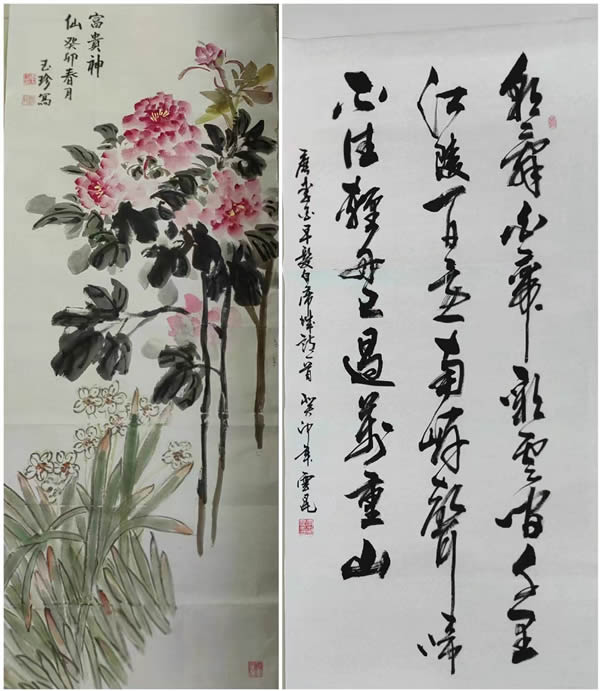 富貴神
仙 癸卯春月
玉珍寫
朝辭白帝彩雲間千里
江陵一日還兩岸猿聲啼
不住輕舟已過萬重山
唐李白早發白帝城詩一首 癸卯